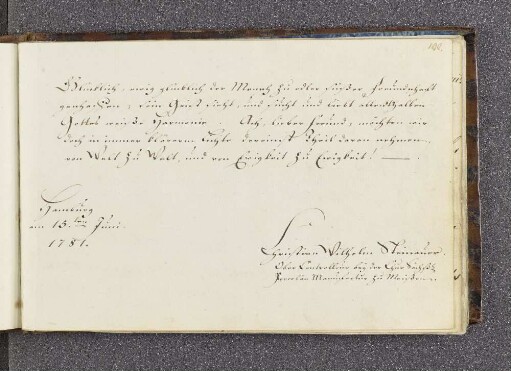 Glücklich, ewig glücklich der Mensch zu edler Freundschaft
geschaffen; sein Geist sieht, und sucht und liebt allenthalben
Gottes weise Harmonie. Ach, lieber Freund, möchten wir
doch in immer klärerm Lichte dereinst Theil daran nehmen,
von Welt zu Welt, und von Ewigkeit zu Ewigkeit! —
Hamburg
am 15ten Juni
1781.
Christian Wilhelm Steinauer,
Ober Controlleur bey der Chur Sächs.
Porcelan Manufactur zu Meissen.